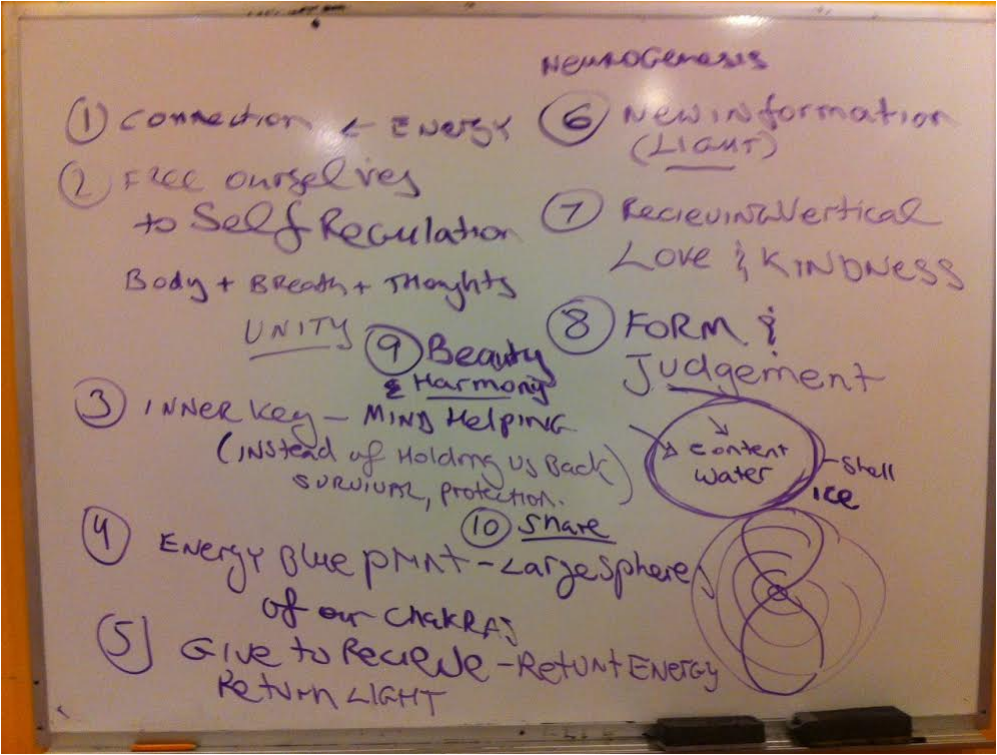 NeuroGenesis
① Connection ← Energy
② Free ourselves
to Self Regulation
Body + Breath + Thoughts
UNITY
③ INNER Key – MIND Helping
(INstead of Holding us Back)
SURVIVAL, protection.
④ ENERGY Blue PRINT – Large Sphere
of our CHAKRAS
⑤ GIVE to Recieve – Return ENERGY
Return LIGHT
⑥ New information
(LIGHT)
⑦ Recieving Vertical
LOVE & KINDNESS
⑧ FORM &
Judgement
content
water
Shell
ICE
⑨ Beauty
& Harmony
⑩ Share